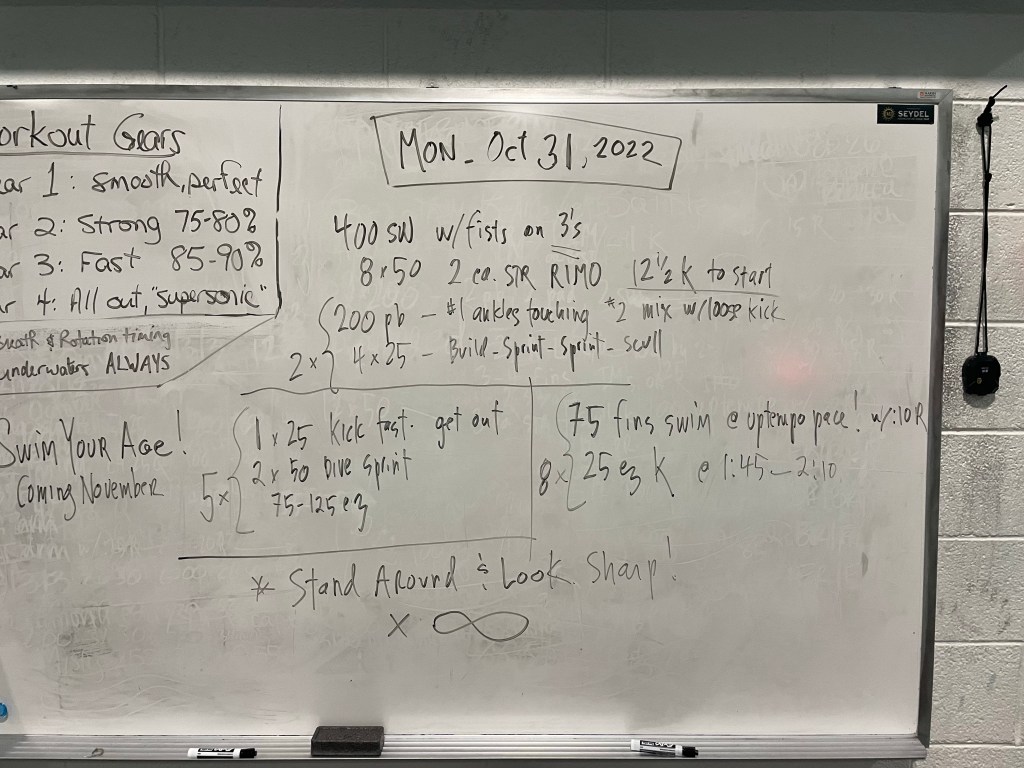 orkout Gears
ear 1: smooth, perfect
ar 2: Strong 75-80%
ar 3: Fast 85-90%
r 4: All out, "supersonic"
Breath & Rotation timing
underwaters ALWAYS
MON- Oct 31, 2022
SEYDEL
400 SW w/fists on 3's
8x50 2 ea. STR RIMO 12½ K to start
2x { 200 pb - #1 ankles touching #2 mix w/loose kick
4x25 - Build-Sprint-Sprint-scull
Swim Your Age!
Coming November
5x { 1x25 Kick fast. get out
2x50 Dive sprint
75-125 ez
8x { 75 fins swim @ uptempo pace! w/:10R
25 ez K @ 1:45-2:10
* Stand Around & Look Sharp!
x ∞